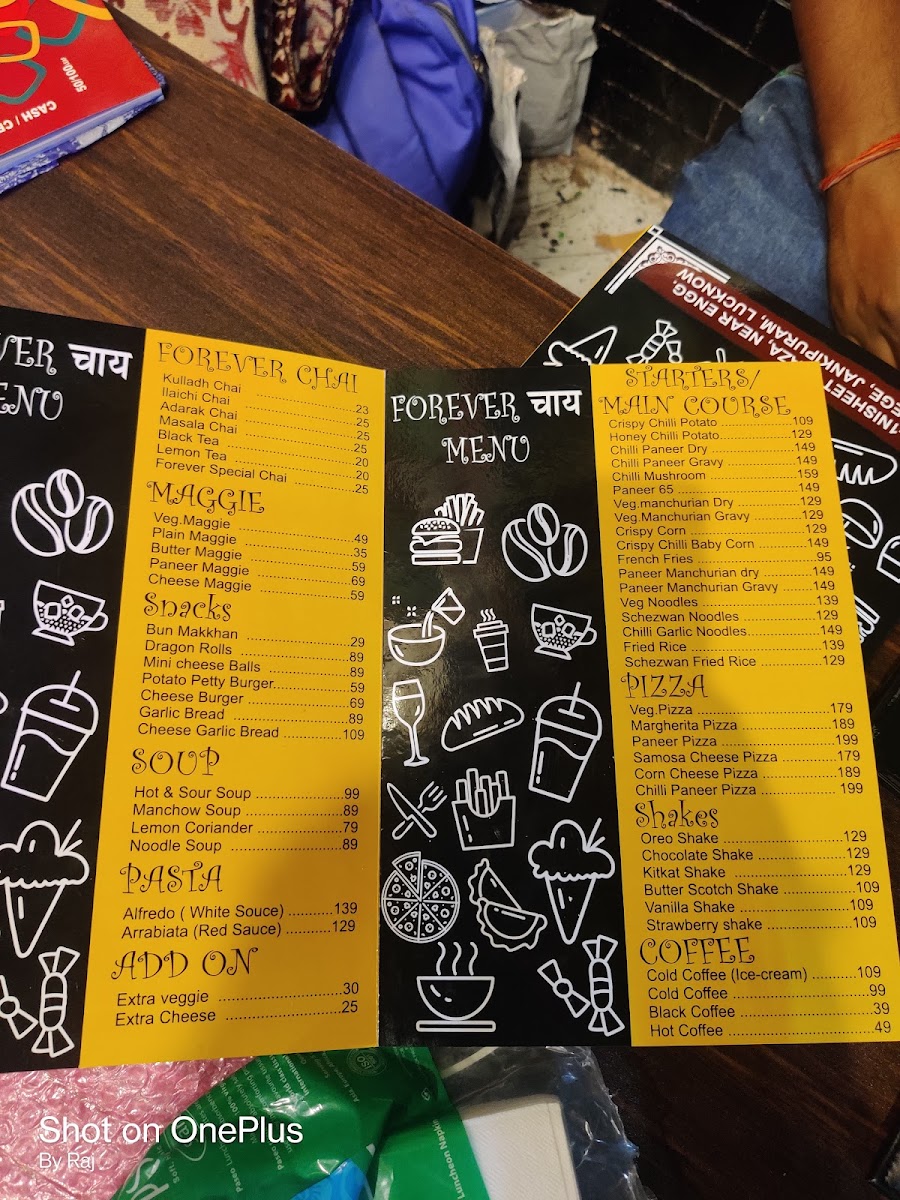 50/100
CASH / CE
VER चाय
ENU
FOREVER CHAI
Kulladh Chai ........23
Ilaichi Chai ........25
Adarak Chai ........25
Masala Chai ........25
Black Tea ........20
Lemon Tea ........20
Forever Special Chai ........25
MAGGIE
Veg.Maggie ........49
Plain Maggie ........35
Butter Maggie ........59
Paneer Maggie ........69
Cheese Maggie ........59
Snacks
Bun Makkhan ........29
Dragon Rolls ........89
Mini cheese Balls ........89
Potato Petty Burger........59
Cheese Burger ........69
Garlic Bread ........89
Cheese Garlic Bread ........109
SOUP
Hot & Sour Soup ........99
Manchow Soup ........89
Lemon Coriander ........79
Noodle Soup ........89
PASTA
Alfredo ( White Souce) ........139
Arrabiata (Red Sauce) ........129
ADD ON
Extra veggie ........30
Extra Cheese ........25
FOREVER चाय
MENU
STARTERS/
MAIN COURSE
Crispy Chilli Potato ........109
Honey Chilli Potato........129
Chilli Paneer Dry ........149
Chilli Paneer Gravy ........149
Chilli Mushroom ........159
Paneer 65 ........149
Veg.manchurian Dry ........129
Veg.Manchurian Gravy ........129
Crispy Corn ........129
Crispy Chilli Baby Corn ........149
French Fries ........95
Paneer Manchurian dry ........149
Paneer Manchurian Gravy ........149
Veg Noodles ........139
Schezwan Noodles ........129
Chilli Garlic Noodles........149
Fried Rice ........139
Schezwan Fried Rice ........129
PIZZA
Veg.Pizza ........179
Margherita Pizza ........189
Paneer Pizza ........199
Samosa Cheese Pizza ........179
Corn Cheese Pizza ........189
Chilli Paneer Pizza ........199
Shakes
Oreo Shake ........129
Chocolate Shake ........129
Kitkat Shake ........129
Butter Scotch Shake ........109
Vanilla Shake ........109
Strawberry shake ........109
COFFEE
Cold Coffee (Ice-cream) ........109
Cold Coffee ........99
Black Coffee ........39
Hot Coffee ........49
INISHEET
ZA, NEAR ENGG.
EGE, JANKIPURAM, LUCKNOW
Luncheon Napkin
Shot on OnePlus
By Raj